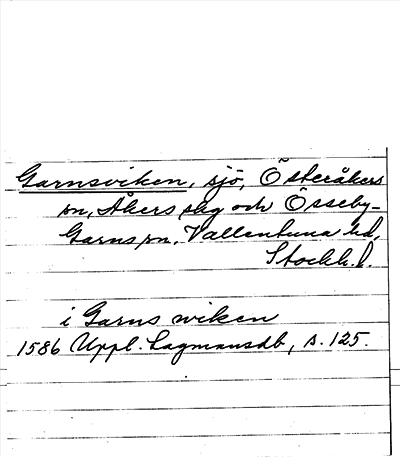 Garnsviken, sjö, Österåkers
sn, Åkers slg och Össeby-
Garns sn, Vallentuna hd,
Stockh. l.
i Garns wiken
1586 Uppl. Lagmansdb, s. 125.